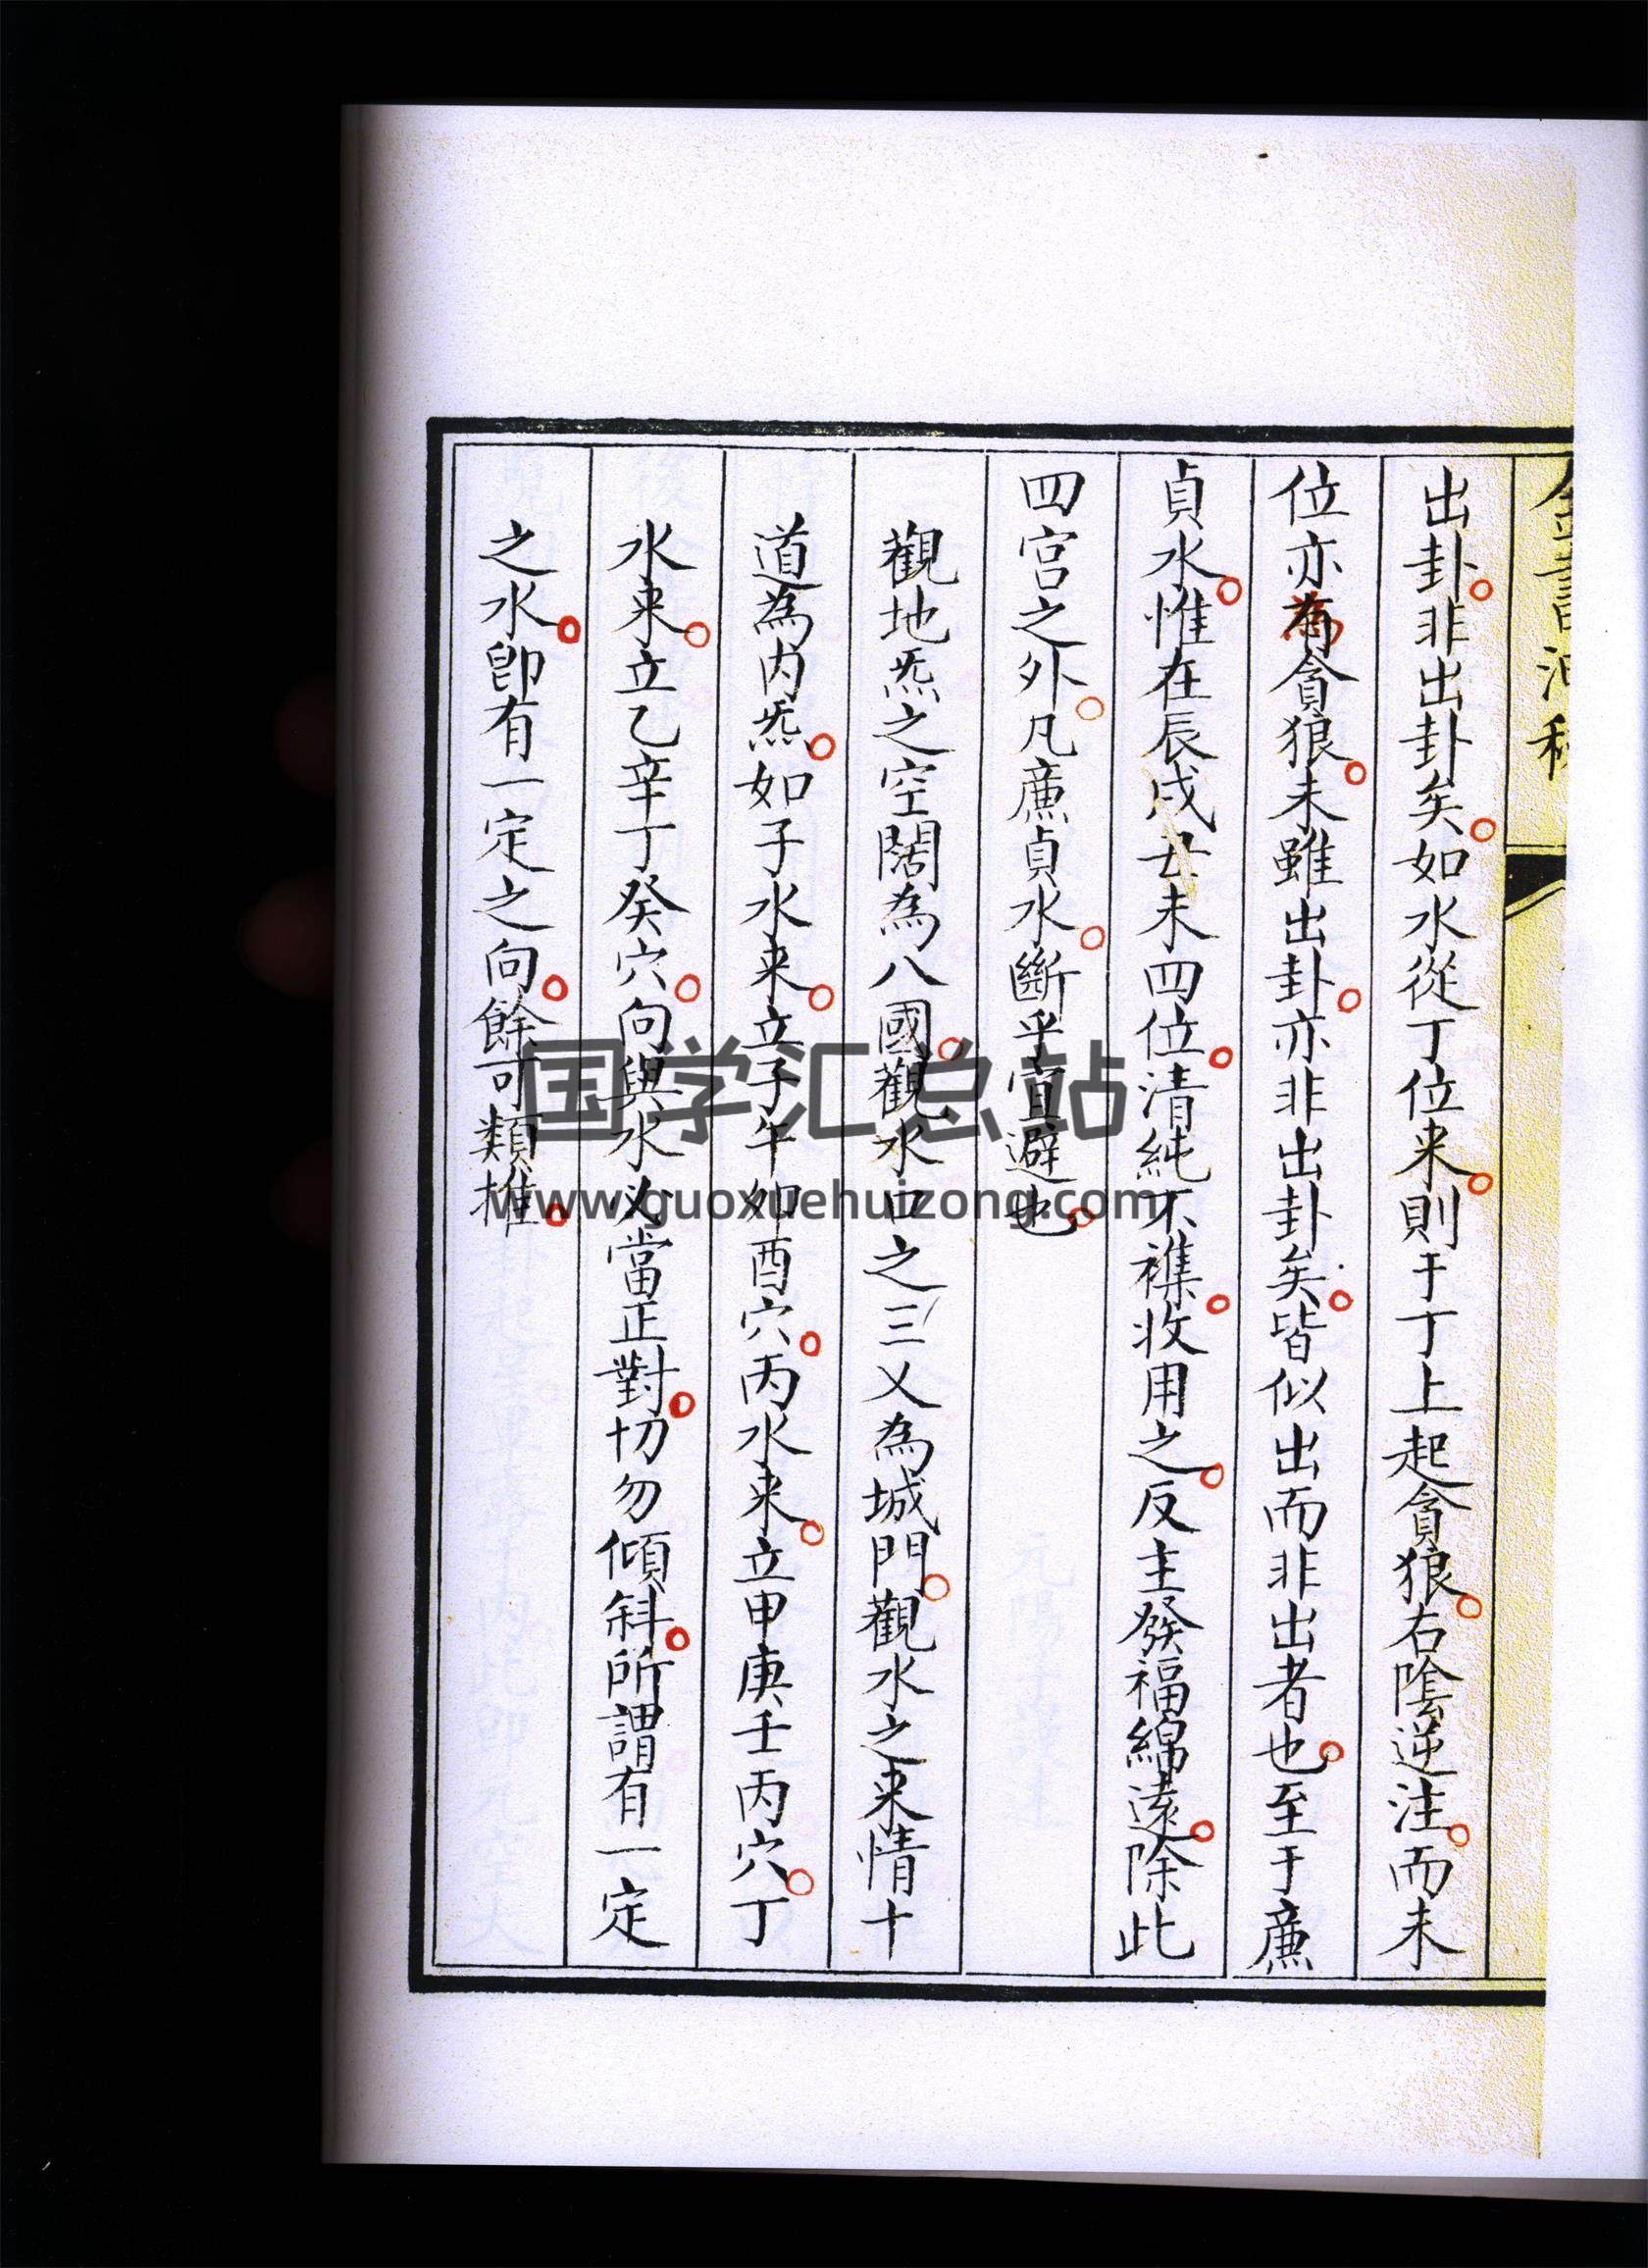 出卦非出卦矣如水從丁位来則于丁上起貪狼右陰逆注而未
位亦為貪狼未雖出卦亦非出卦矣皆似出而非出者也至于廉
貞水惟在辰戌丑未四位清純不襍收用之反主發福綿遠除此
四宮之外凡廉貞水斷乎宜避也
觀地炁之空闊為八國觀水口之三叉為城門觀水之来情十
道為内炁如子水来立子午如酉穴丙水来立甲庚壬丙穴丁
水来立乙辛丁癸穴向與水必當正對切勿傾斜所謂有一定
之水卽有一定之向餘可類推
国学汇总站
www.guoxuehuizong.com